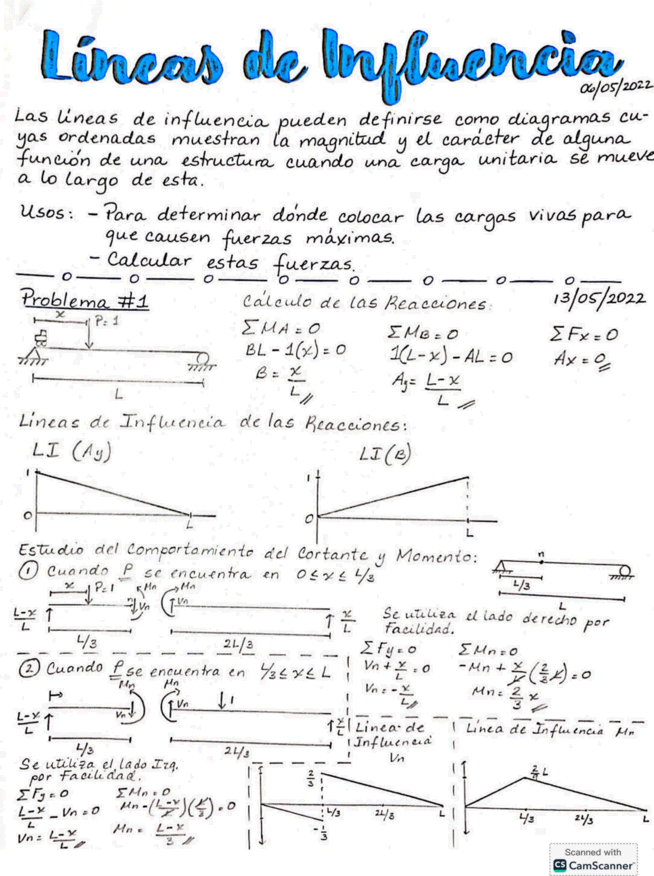 Líneas de Influencia
06/05/2022
Las líneas de influencia pueden definirse como diagramas cu-
yas ordenadas muestran la magnitud y el carácter de alguna
función de una estructura cuando una carga unitaria se mueve
a lo largo de esta.
Usos: - Para determinar dónde colocar las cargas vivas para
que causen fuerzas máximas.
- Calcular estas fuerzas.
Problema #1
Cálculo de las Reacciones:
13/05/2022
x
P=1
L
ΣMA = 0
BL - 1(x) = 0
B = x/L
ΣMB = 0
1(L-x) - AL = 0
Ay = L-x/L
ΣFx = 0
Ax = 0
Líneas de Influencia de las Reacciones:
LI (Ay)
1
0
L
LI (B)
1
0
L
Estudio del Comportamiento del Cortante y Momento:
n
L/3
L
① Cuando P se encuentra en 0≤x≤L/3
x
P=1
Mn
Vn
L-x/L
L/3
Mn
Vn
x/L
2L/3
Se utiliza el lado derecho por
facilidad.
ΣFy = 0
Vn + x/L = 0
Vn = -x/L
ΣMn = 0
-Mn + x/L (2/3 L) = 0
Mn = 2/3 x
② Cuando P se encuentra en L/3≤x≤L
Mn
Vn
L-x/L
L/3
Mn
Vn
1
x/L
2L/3
Se utiliza el lado Izq.
por Facilidad.
ΣFy = 0
L-x/L - Vn = 0
Vn = L-x/L
ΣMn = 0
Mn - (L-x/L)(L/3) = 0
Mn = L-x/3
Línea de
Influencia
Vn
2/3
-1/3
L/3
2L/3
L
Línea de Influencia Mn
L
L/3
2L/3
L
Scanned with
CS CamScanner